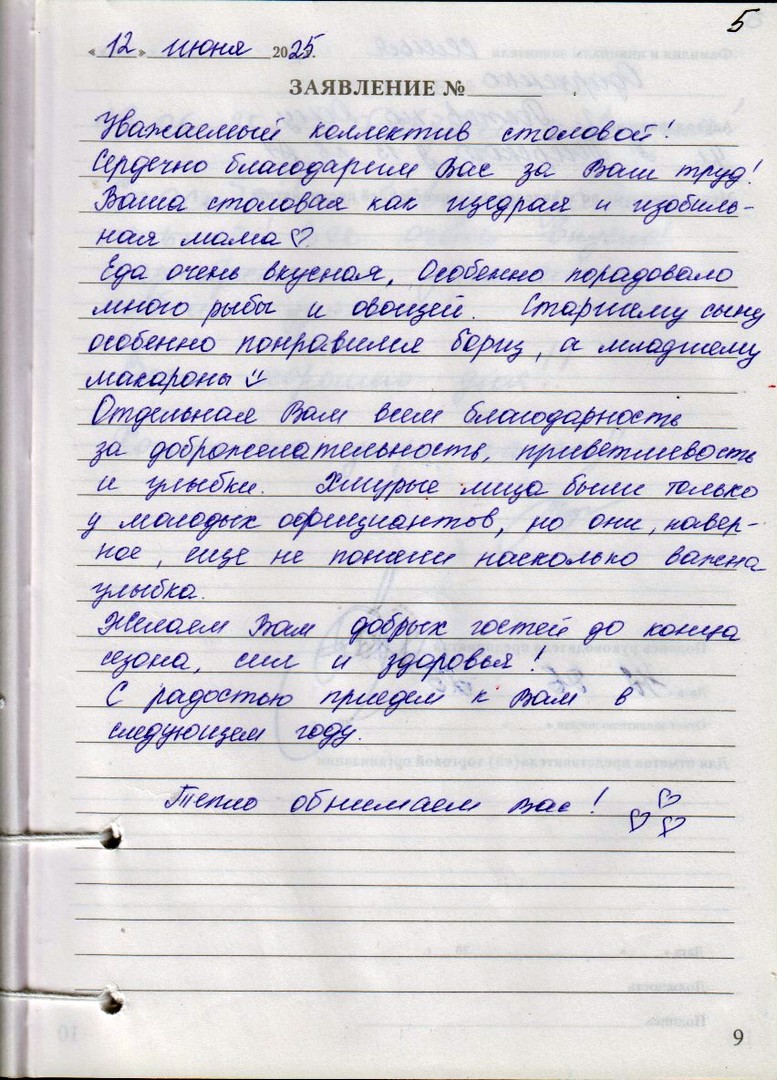 5
« 12 » июня 2025.
ЗАЯВЛЕНИЕ №
Уважаемый коллектив столовой!
Сердечно благодарим Вас за Ваш труд!
Ваша столовая как щедрая и изобиль-
ная мама ♡.
Еда очень вкусная, Особенно порадовало
много рыбы и овощей. Старшему сыну
особенно понравился борщ, а младшему
макароны
Отдельная Вам всем благодарность
за доброжелательность, приветливость
и улыбки. Хмурые лица были только
у молодых официантов, но они, навер-
ное, еще не поняли насколько важна
улыбка.
Желаем Вам добрых гостей до конца
сезона, сил и здоровья!
С радостью приедем к Вам в
следующем году.
Тепло обнимаем Вас! ♡♡♡
9